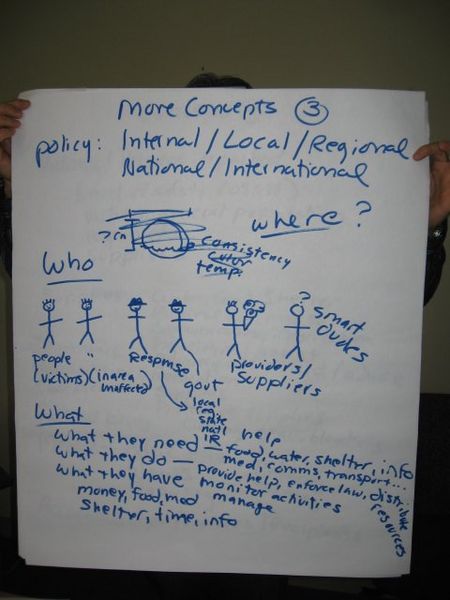 More Concepts ③
policy: Internal/Local/Regional
National/International
where?
? cn
consistency
color
temp.
Who
?
smart
dudes
people "
(victims) (in area
unaffected)
Response
govt
local
reg
state
nat'l
IR
providers/
suppliers
What
help
what they need — food, water, shelter, info
med, comms, transport...
what they do — provide help, enforce law, distribute
resources
monitor activities
manage
what they have
money, food, med
shelter, time, info